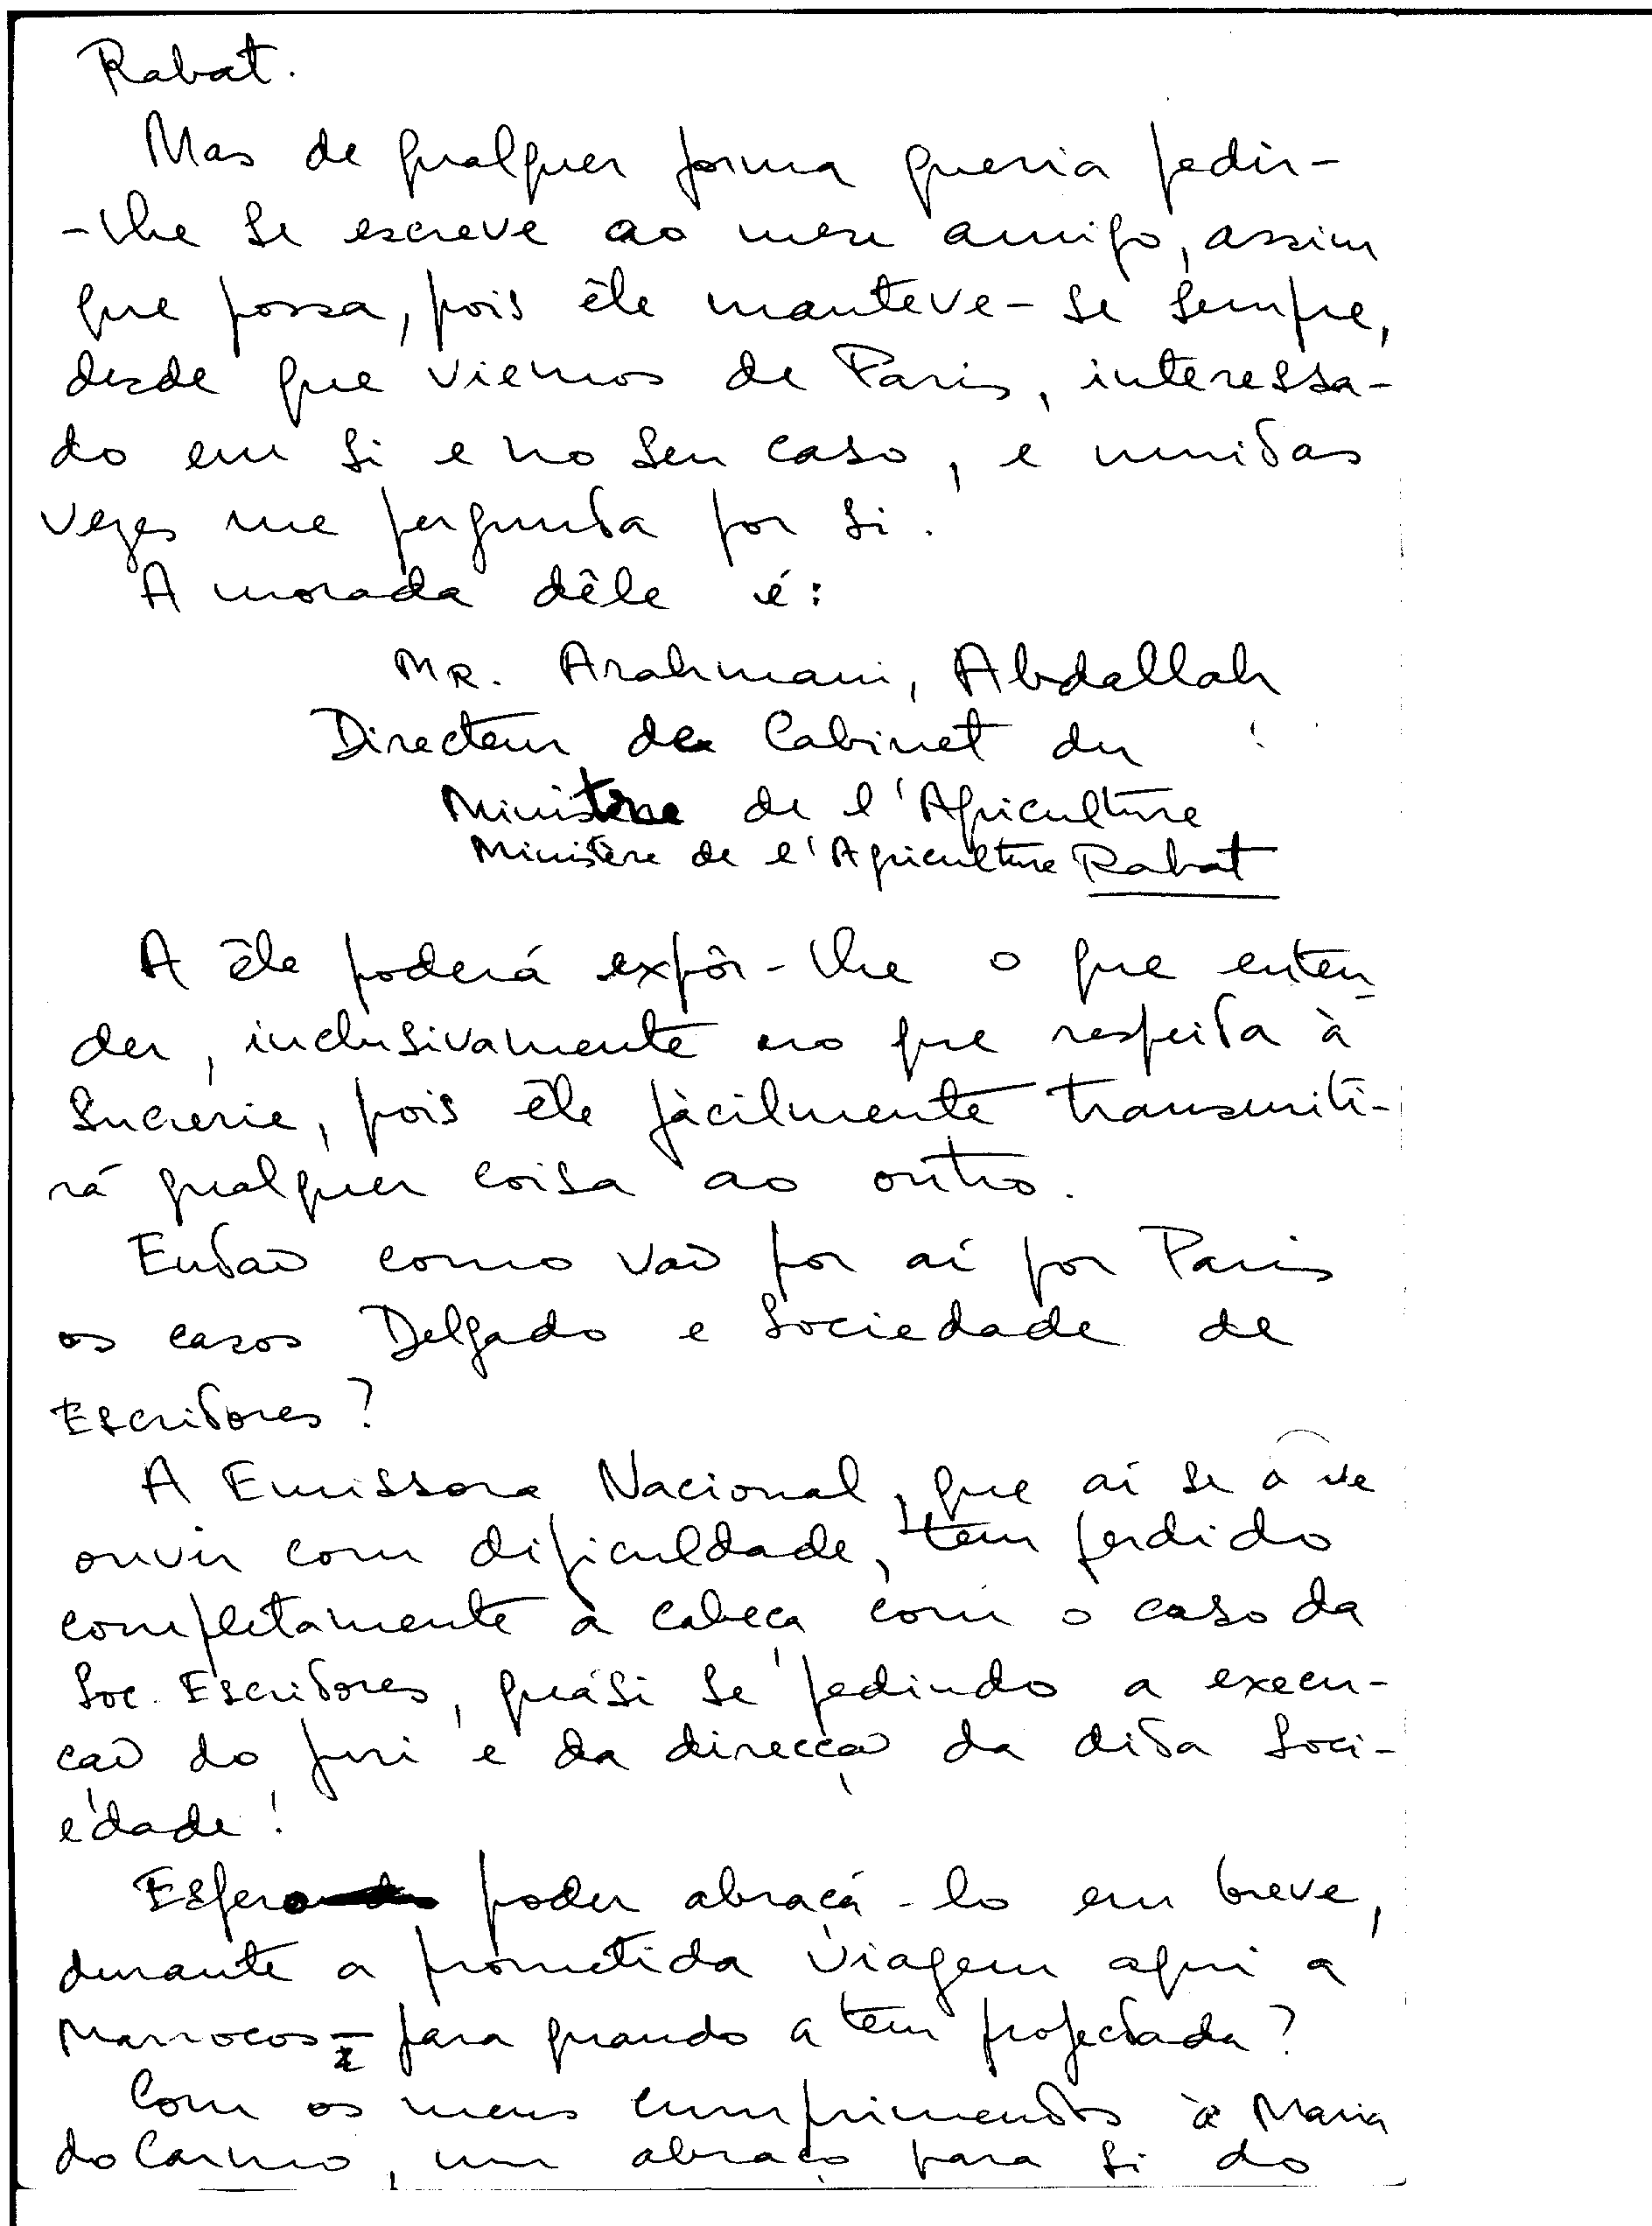 Rabat.
Mas de qualquer forma queria pedir-
-lhe se escreve ao meu amigo, assim
que possa, pois êle manteve-se sempre,
desde que viemos de Paris, interessa-
do em si e no seu caso, e muitas
vezes me pergunta por si.
A morada dêle é:
MR. Arahmani, Abdallah
Directeur de Cabinet du
Ministère de l'Agriculture
Ministère de l'Agriculture Rabat
A êle poderá expôr-lhe o que enten
der, inclusivamente no que respeita à
Sucrerie, pois êle fàcilmente transmiti-
rá qualquer coisa ao outro.
Então como vão por aí por Paris
os casos Delgado e Sociedade de
Escritores?
A Emissora Nacional, que aí se deve
ouvir com dificuldade, tem perdido
completamente a cabeça com o caso da
Soc. Escritores, quási se pedindo a execu-
ção do juri e da direcção da dita Soci-
edade!
Espero poder abraçá-lo em breve,
durante a prometida viagem aqui a
Marrocos - para quando a tem projectada?
Com os meus cumprimentos à Maria
do Carmo, um abraço para si do